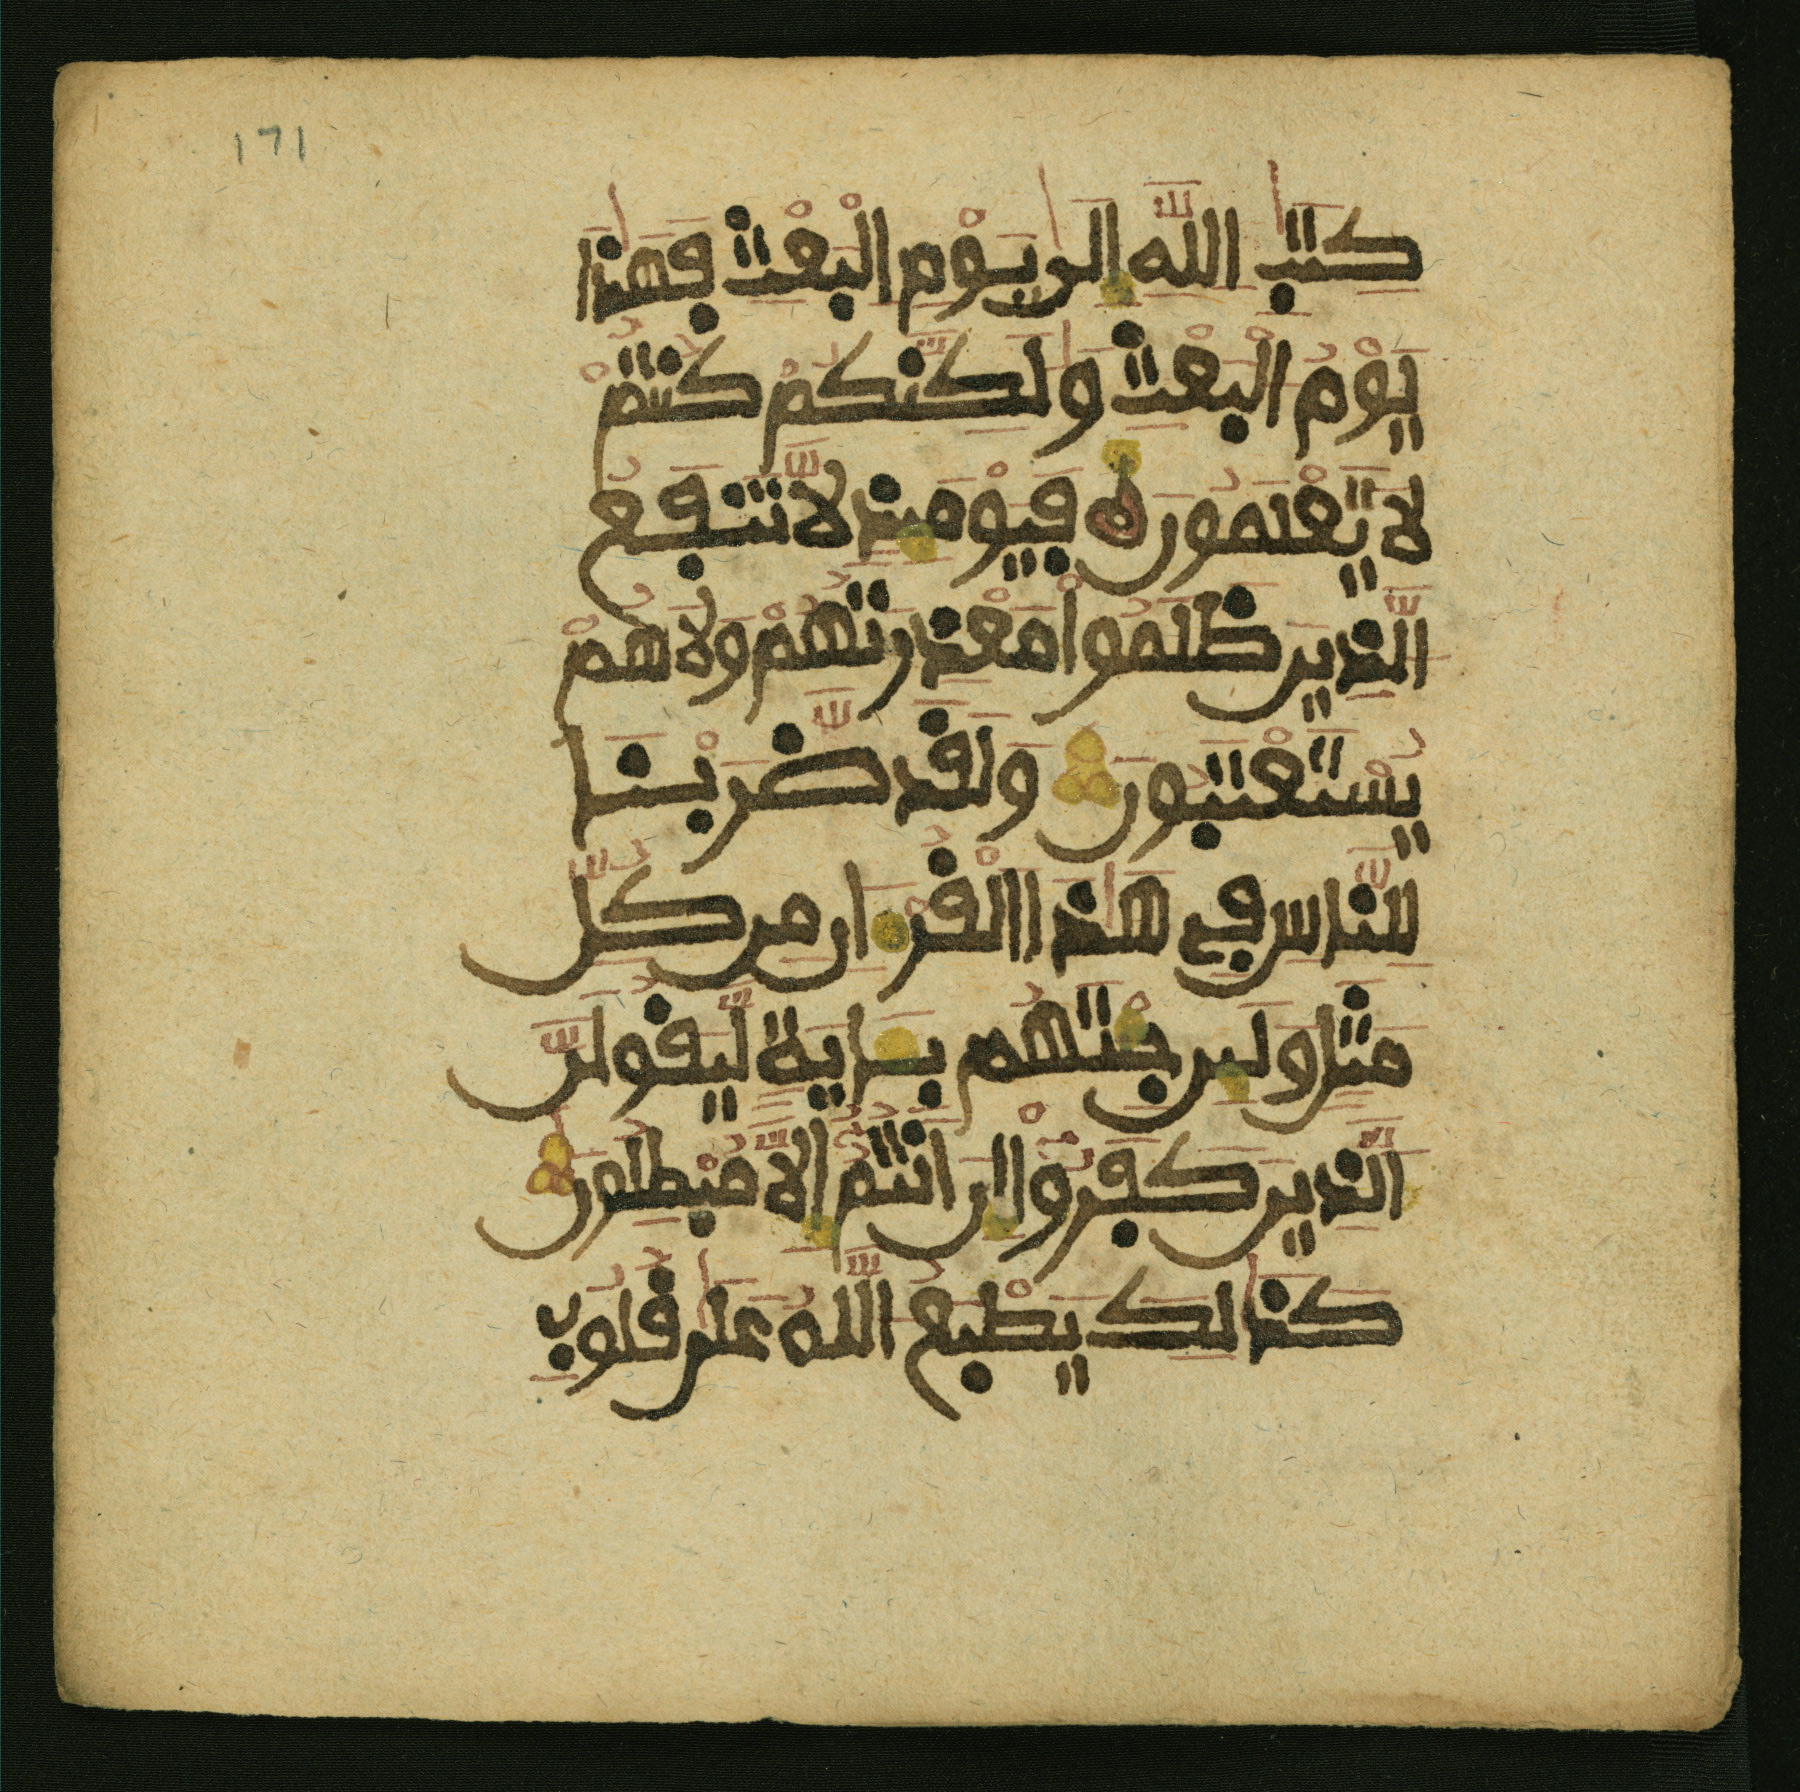 ١٦١
كِتَٰبِ اللَّهِ إِلَىٰ يَوْمِ الْبَعْثِ فَهَٰذَا
يَوْمُ الْبَعْثِ وَلَٰكِنَّكُمْ كُنتُمْ
لَا تَعْلَمُونَ فَيَوْمَئِذٍ لَّا تَنفَعُ
الَّذِينَ ظَلَمُواْ مَعْذِرَتُهُمْ وَلَا هُمْ
يُسْتَعْتَبُونَ وَلَقَد ضَّرَبْنَا
لِلنَّاسِ فِي هَٰذَا الْقُرْءَانِ مِن كُلِّ
مَثَلٍ وَلَئِن جِئْتَهُم بِـَٔايَةٍ لَّيَقُولَنَّ
الَّذِينَ كَفَرُوٓاْ إِنْ أَنتُمُۥٓ إِلَّا مُبْطِلُونَ
كَذَٰلِكَ يَطْبَعُ اللَّهُ عَلَىٰ قُلُوبِ